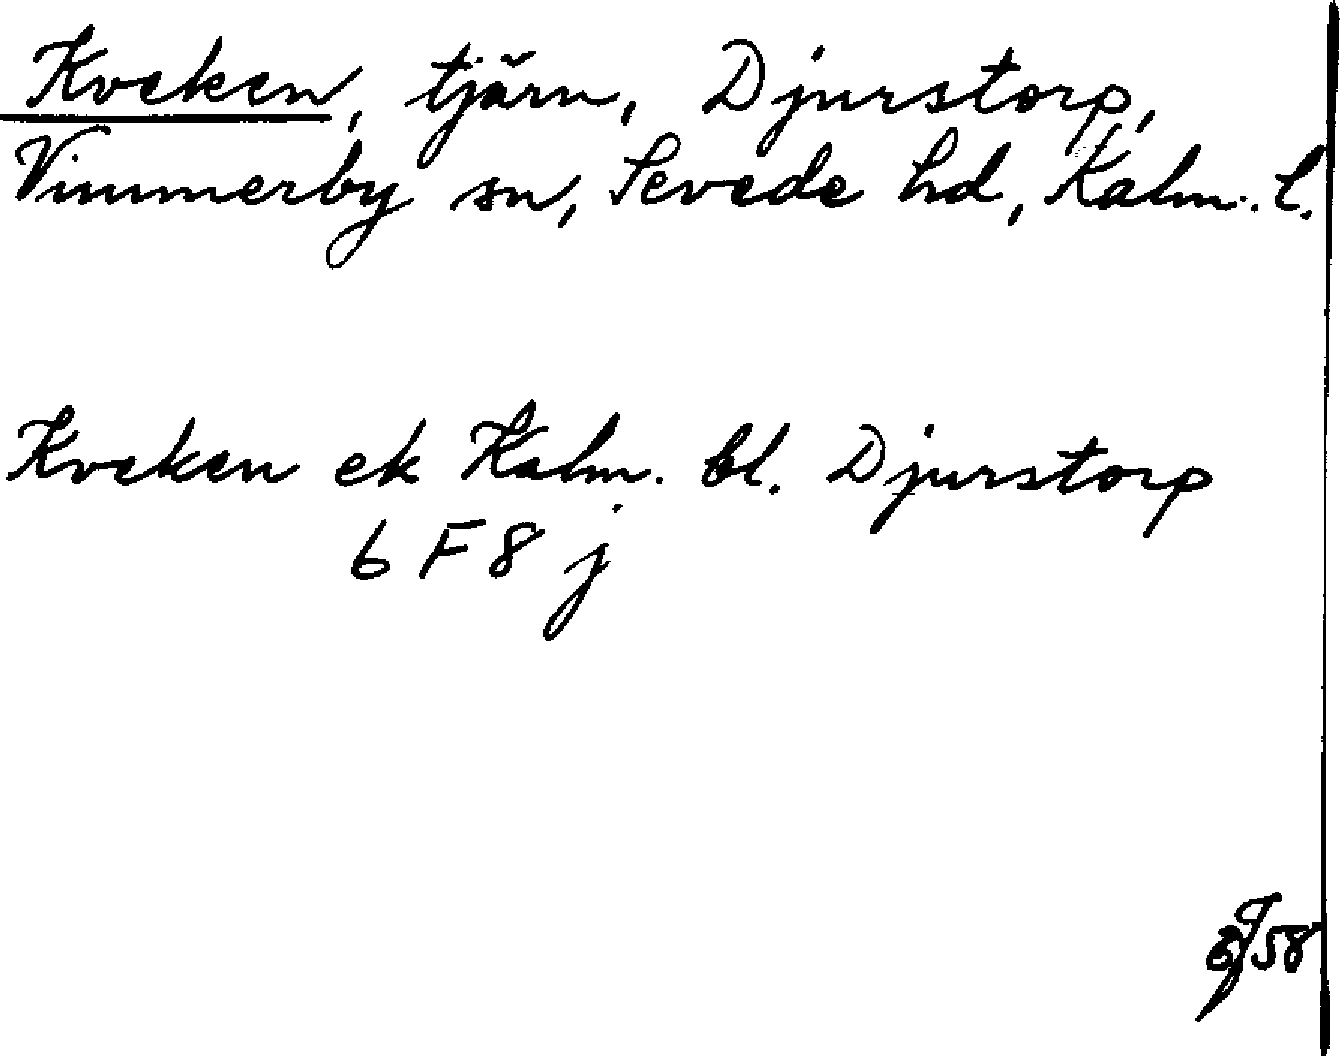 Kveken, tjärn, Djurstorp,
Vimmerby sn, Sevede hd, Kalm. l.
Kveken ek Kalm. bl. Djurstorp
6 F 8 j
58